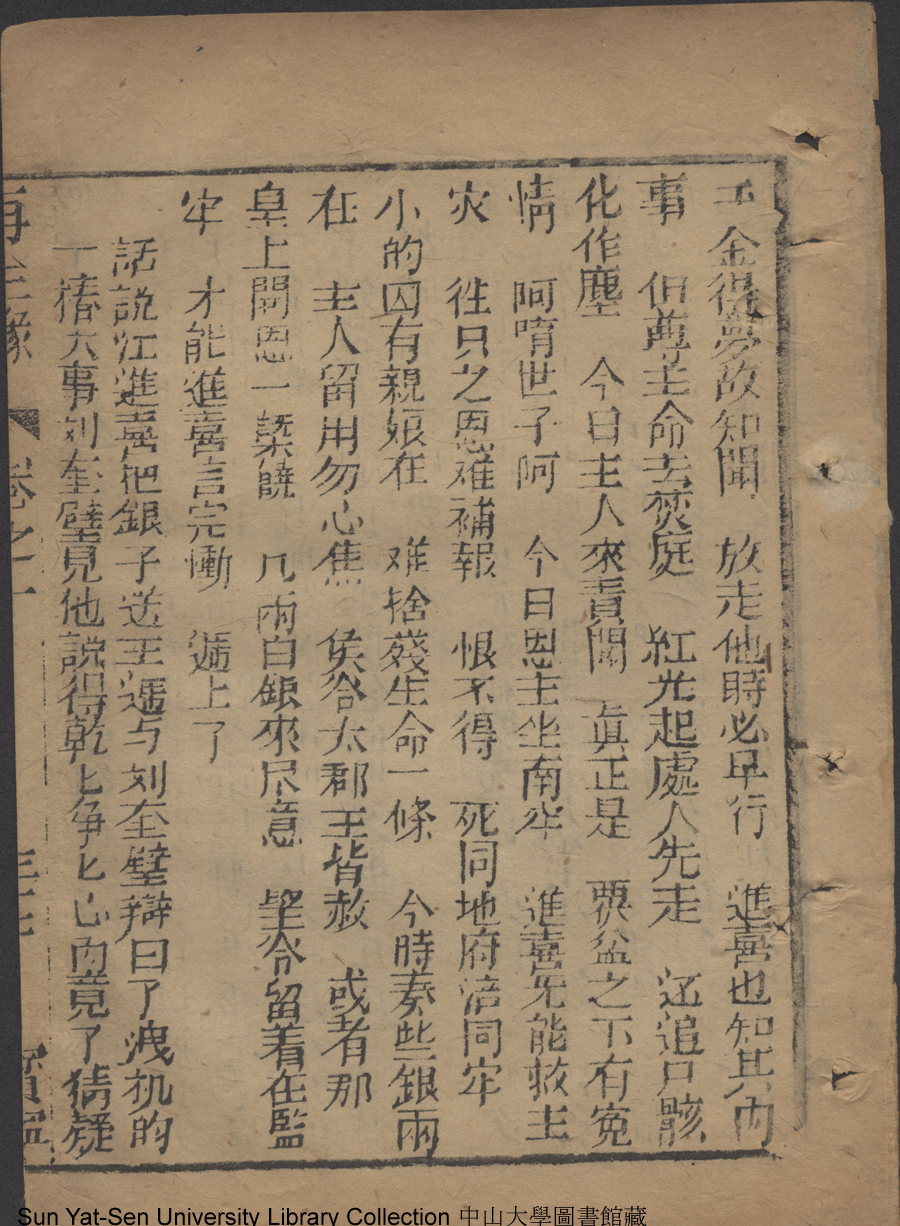 千金得夢故知聞　放走他時必早行　進喜也知其內
事　伯尊主命去焚庭　紅光起處人先走　还追尸骸
化作塵　今日主人來責問　真正是　覆盆之下有冤
情　阿唷世子阿　今日恩主坐南牢　進喜无能救主
灾　徃只之恩难補報　恨不得　死同地府涪同牢
小的囚有親娘在　难捨残生命一條　今時奏些銀兩
在　主人留用勿心焦　侯爷太郡王皆赦　或者那
皇上開恩一槩饒　几兩白銀來尽意　望爷留着在監
牢　才能進喜言完慟　遞上了
話説江進喜把銀子送王遥与刘奎璧辯曰了洩机的
一樁大事刘奎璧見他説得乾匕争匕心內竟了猜疑
再生緣　卷之十
Sun Yat-Sen University Library Collection 中山大學圖書館藏